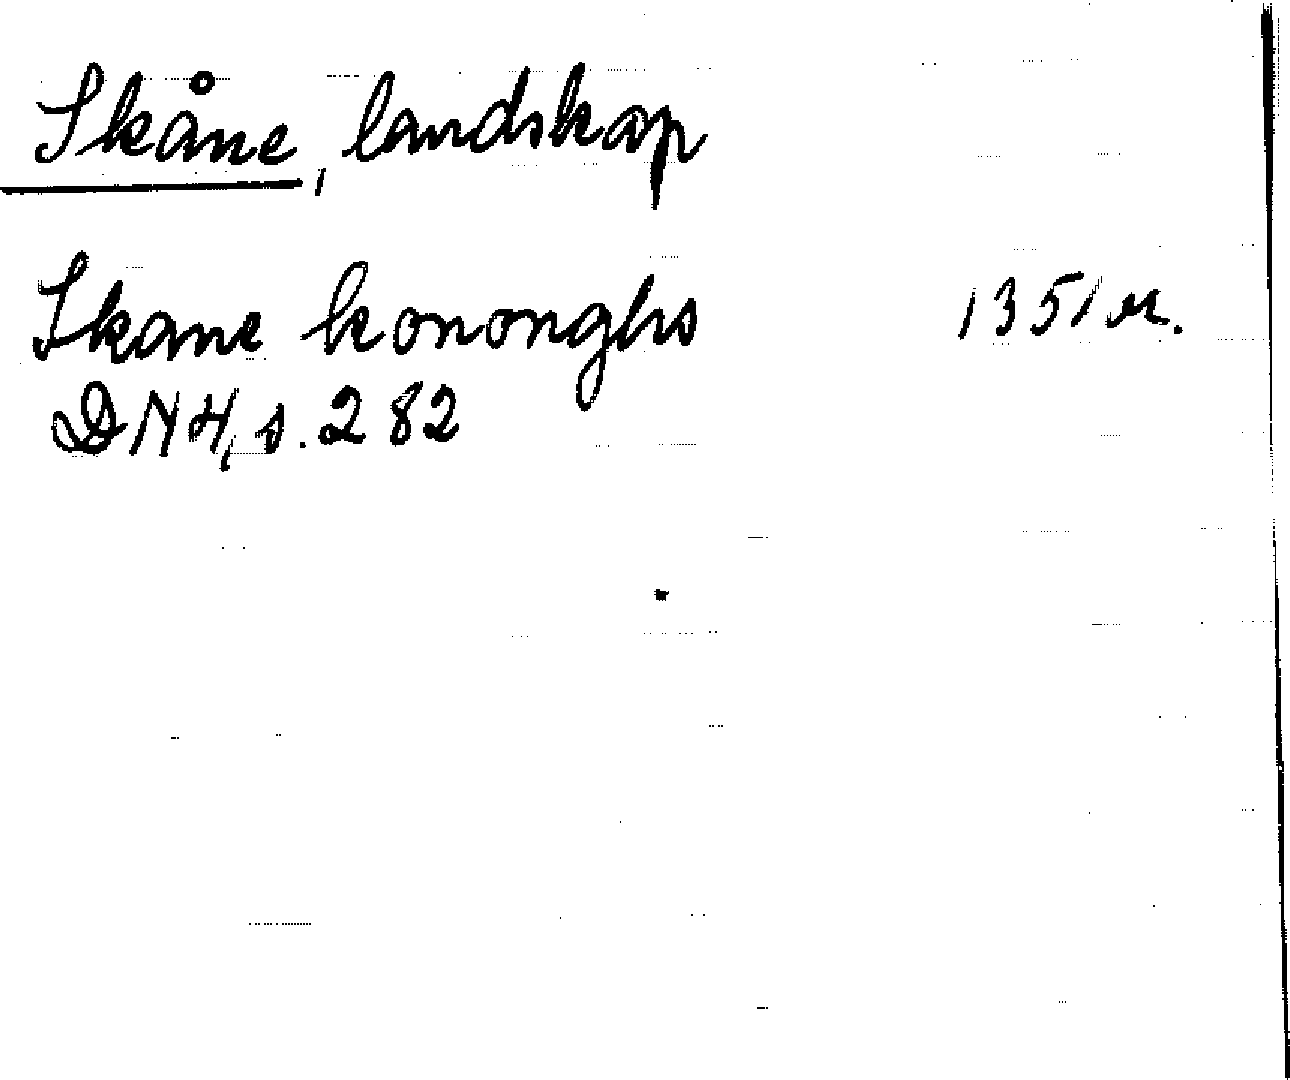 Skåne, landskap
Skane kononghs 1351 u.
DN 4, s. 282